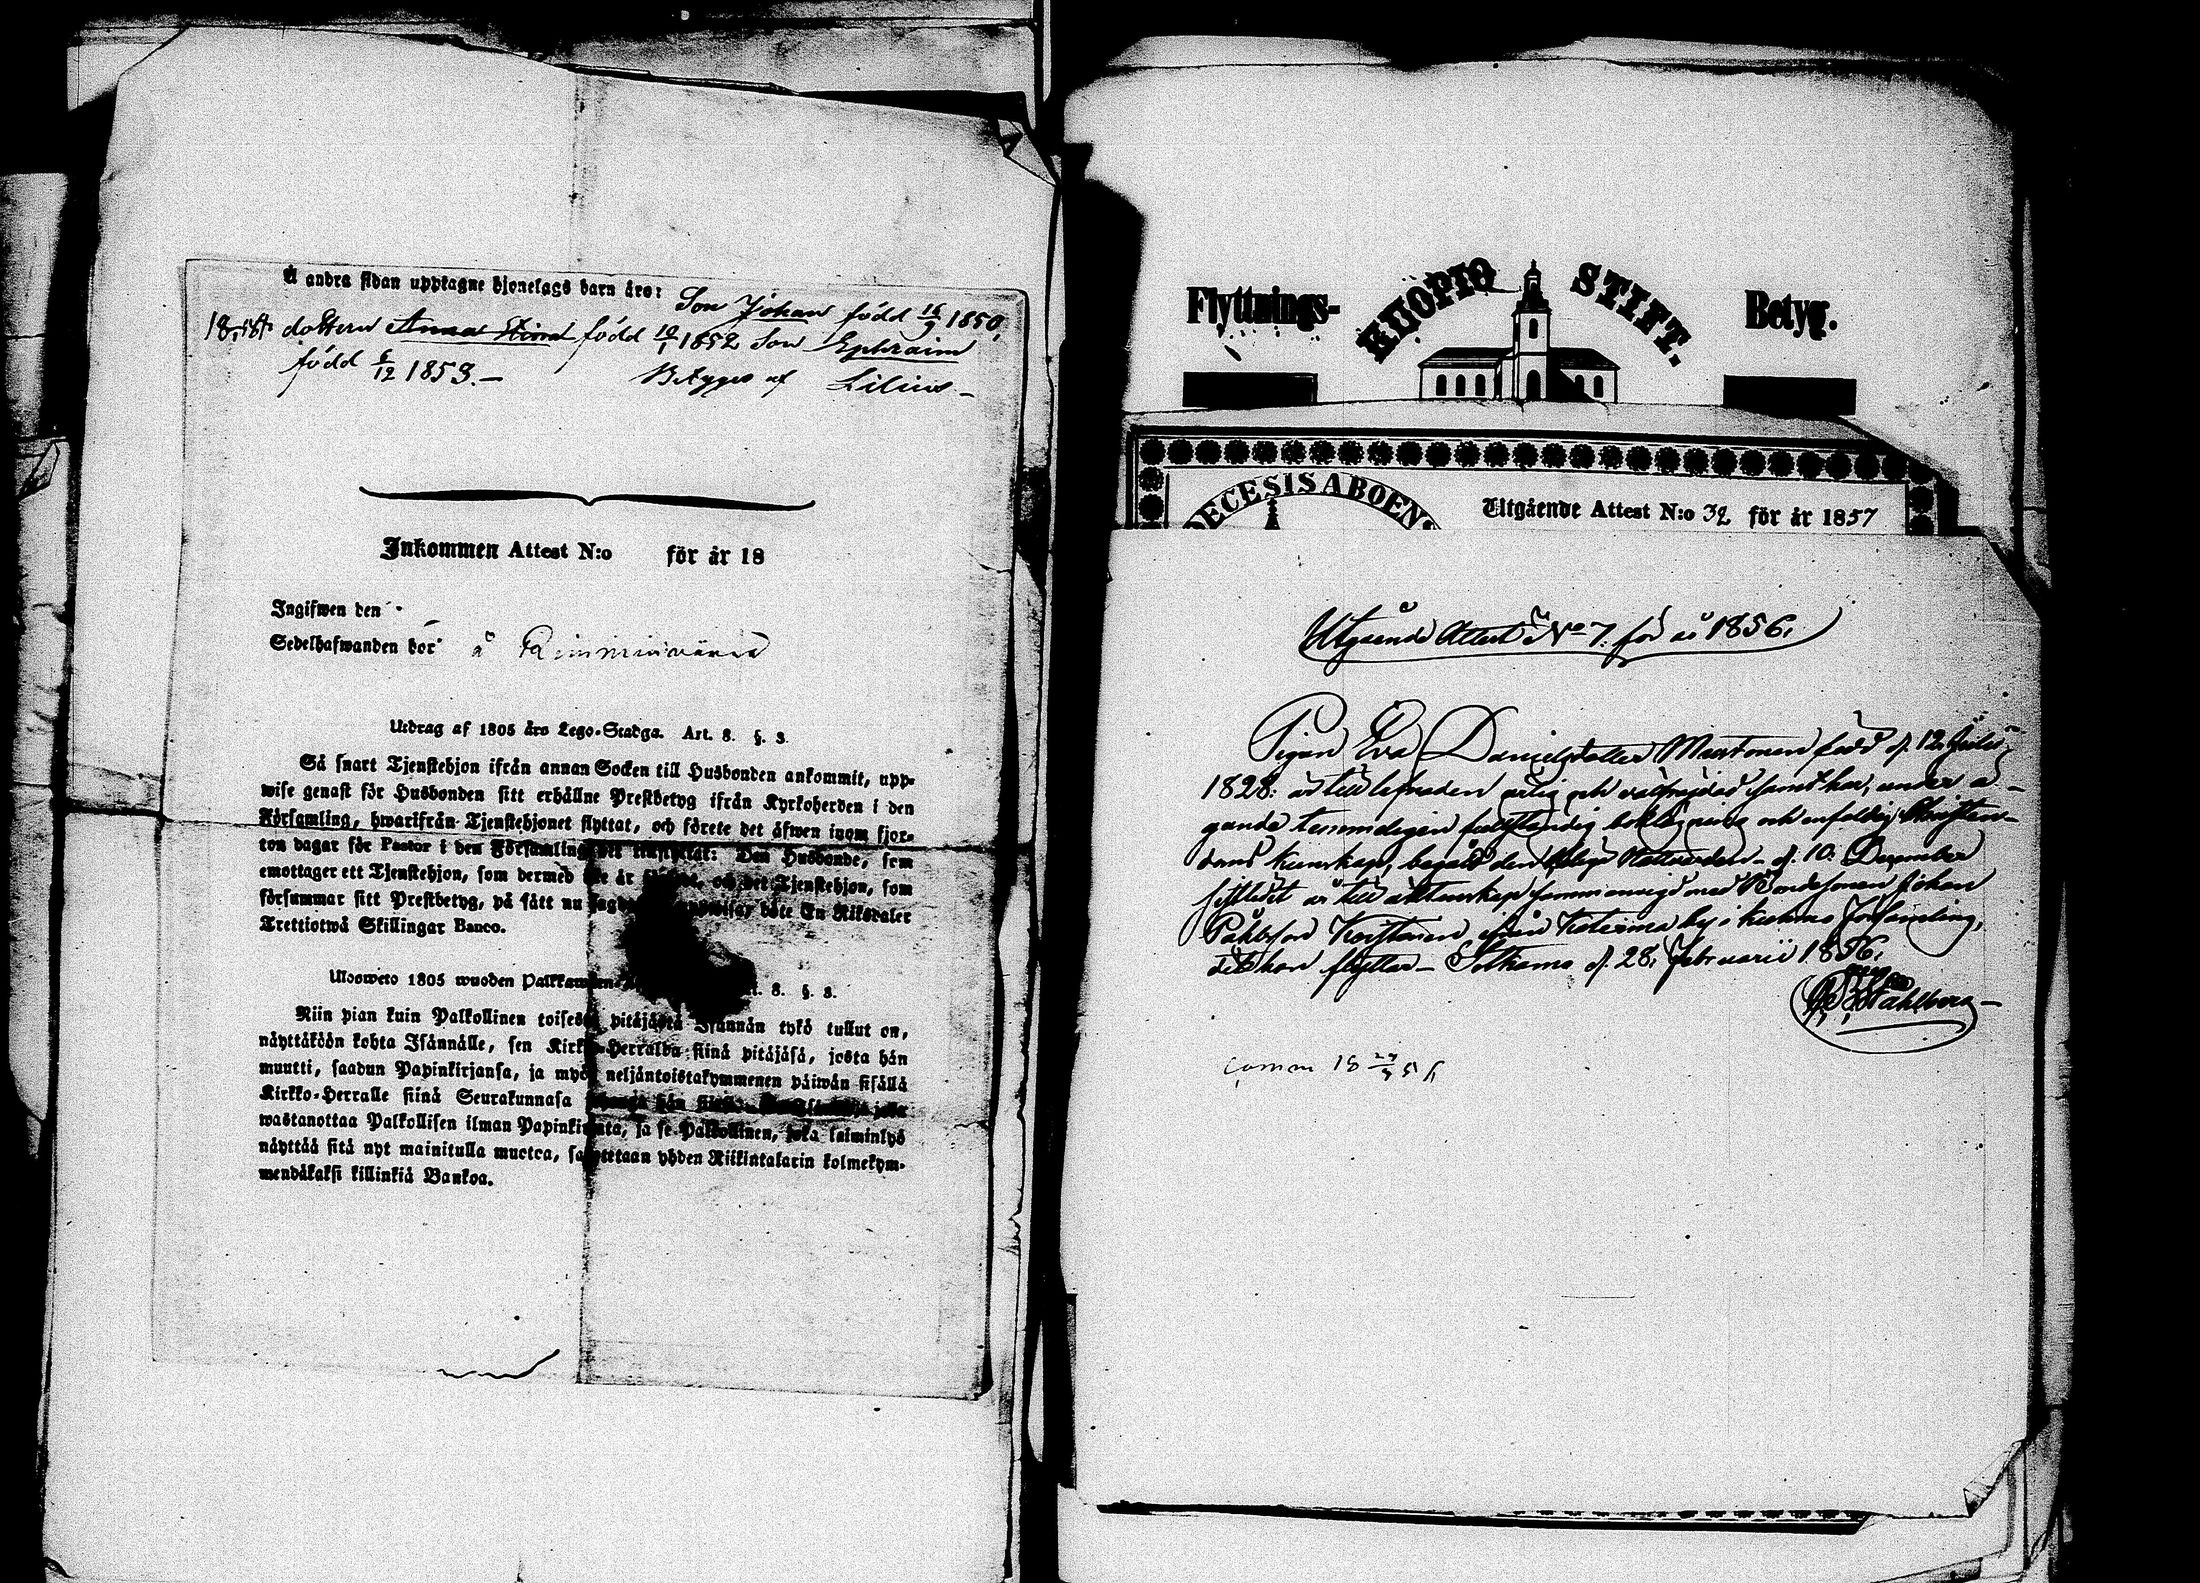 Å andra sidan upptagne hjonelags barn äro: Son Johan född 16/9 1850,
dottern Anna Stina född 10/1 1852 Son Ephraim
född 6/12 1853.– Betygas af Lilius–
Inkommen Attest N:o för år 18
Ingifwen den
Sedelhafwanden bor å
Utdrag af 1805 års Lego-Stadga. Art. 8. §. 3.
Så snart Tjenstehjon ifrån annan Socken till Husbonden ankommit, upp-
wise genast för Husbonden sitt erhållne Prestbetyg ifrån Kyrkoherden i den
Församling, hwarifrån Tjenstehjonet flyttat, och förete det äfwen inom fjor-
ton dagar för Pastor i den Församling det Husbonde, som
emottager ett Tjenstehjon, som dermed är och det Tjenstehjon, som
försummar sitt Prestbetyg, på sätt nu böte En Riksdaler
Trettiotwå Skillingar Banco.
Ulosweto 1805 wuoden 8. §. 3.
Niin pian kuin Palkollinen toisesta pitäjästä Isännän tykö tullut on,
näyttäköön kohta Isännälle, sen Kirkko-Herralda siinä pitäjäsä, josta hän
muutti, saadun Papinkirjansa, ja myös neljäntoistakymmenen päiwän sisällä
Kirkko-Herralle siinä Seurakunnasa
wastanottaa Palkollisen ilman Papinkirjata, ja se Palkollinen, joka laiminlyö
näyttää sitä nyt mainitulla muotoa, sakotetaan yhden Riikintalarin kolmekym-
mendäkaksi killinkiä Bankoa.
Flyttnings- KUOPIO STIFT. Betyg.
DIECESIS ABOEN
Utgående Attest N:o 32 för år 1857
Utgående Attest No 7. för år 1856.
Pigan Eva Danielsdotter Mustonen född d. 12 Julii
1828: är till lefnaden ärlig och välfrejdad samt har, under å-
gande temmeligen försvarlig boklesning och enfaldig Christen-
doms kunskap, begått den Heliga Nattvarden d. 10. December
sistledet är till äktenskap sammanvigd med Bondesonen Johan
Påhlsson Korhonen ifrån Katerma by i Kuhmo församling,
dit hon flyttar– Sotkamo d. 28. februarii 1856.
Ståhlberg–